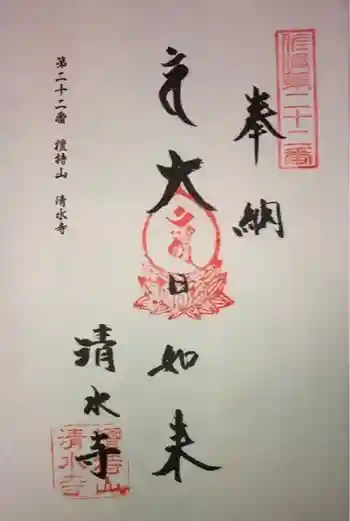 奉納
大日如来
清水寺
第二十二番 檀特山 清水寺
第二十二番
檀特山
清水寺